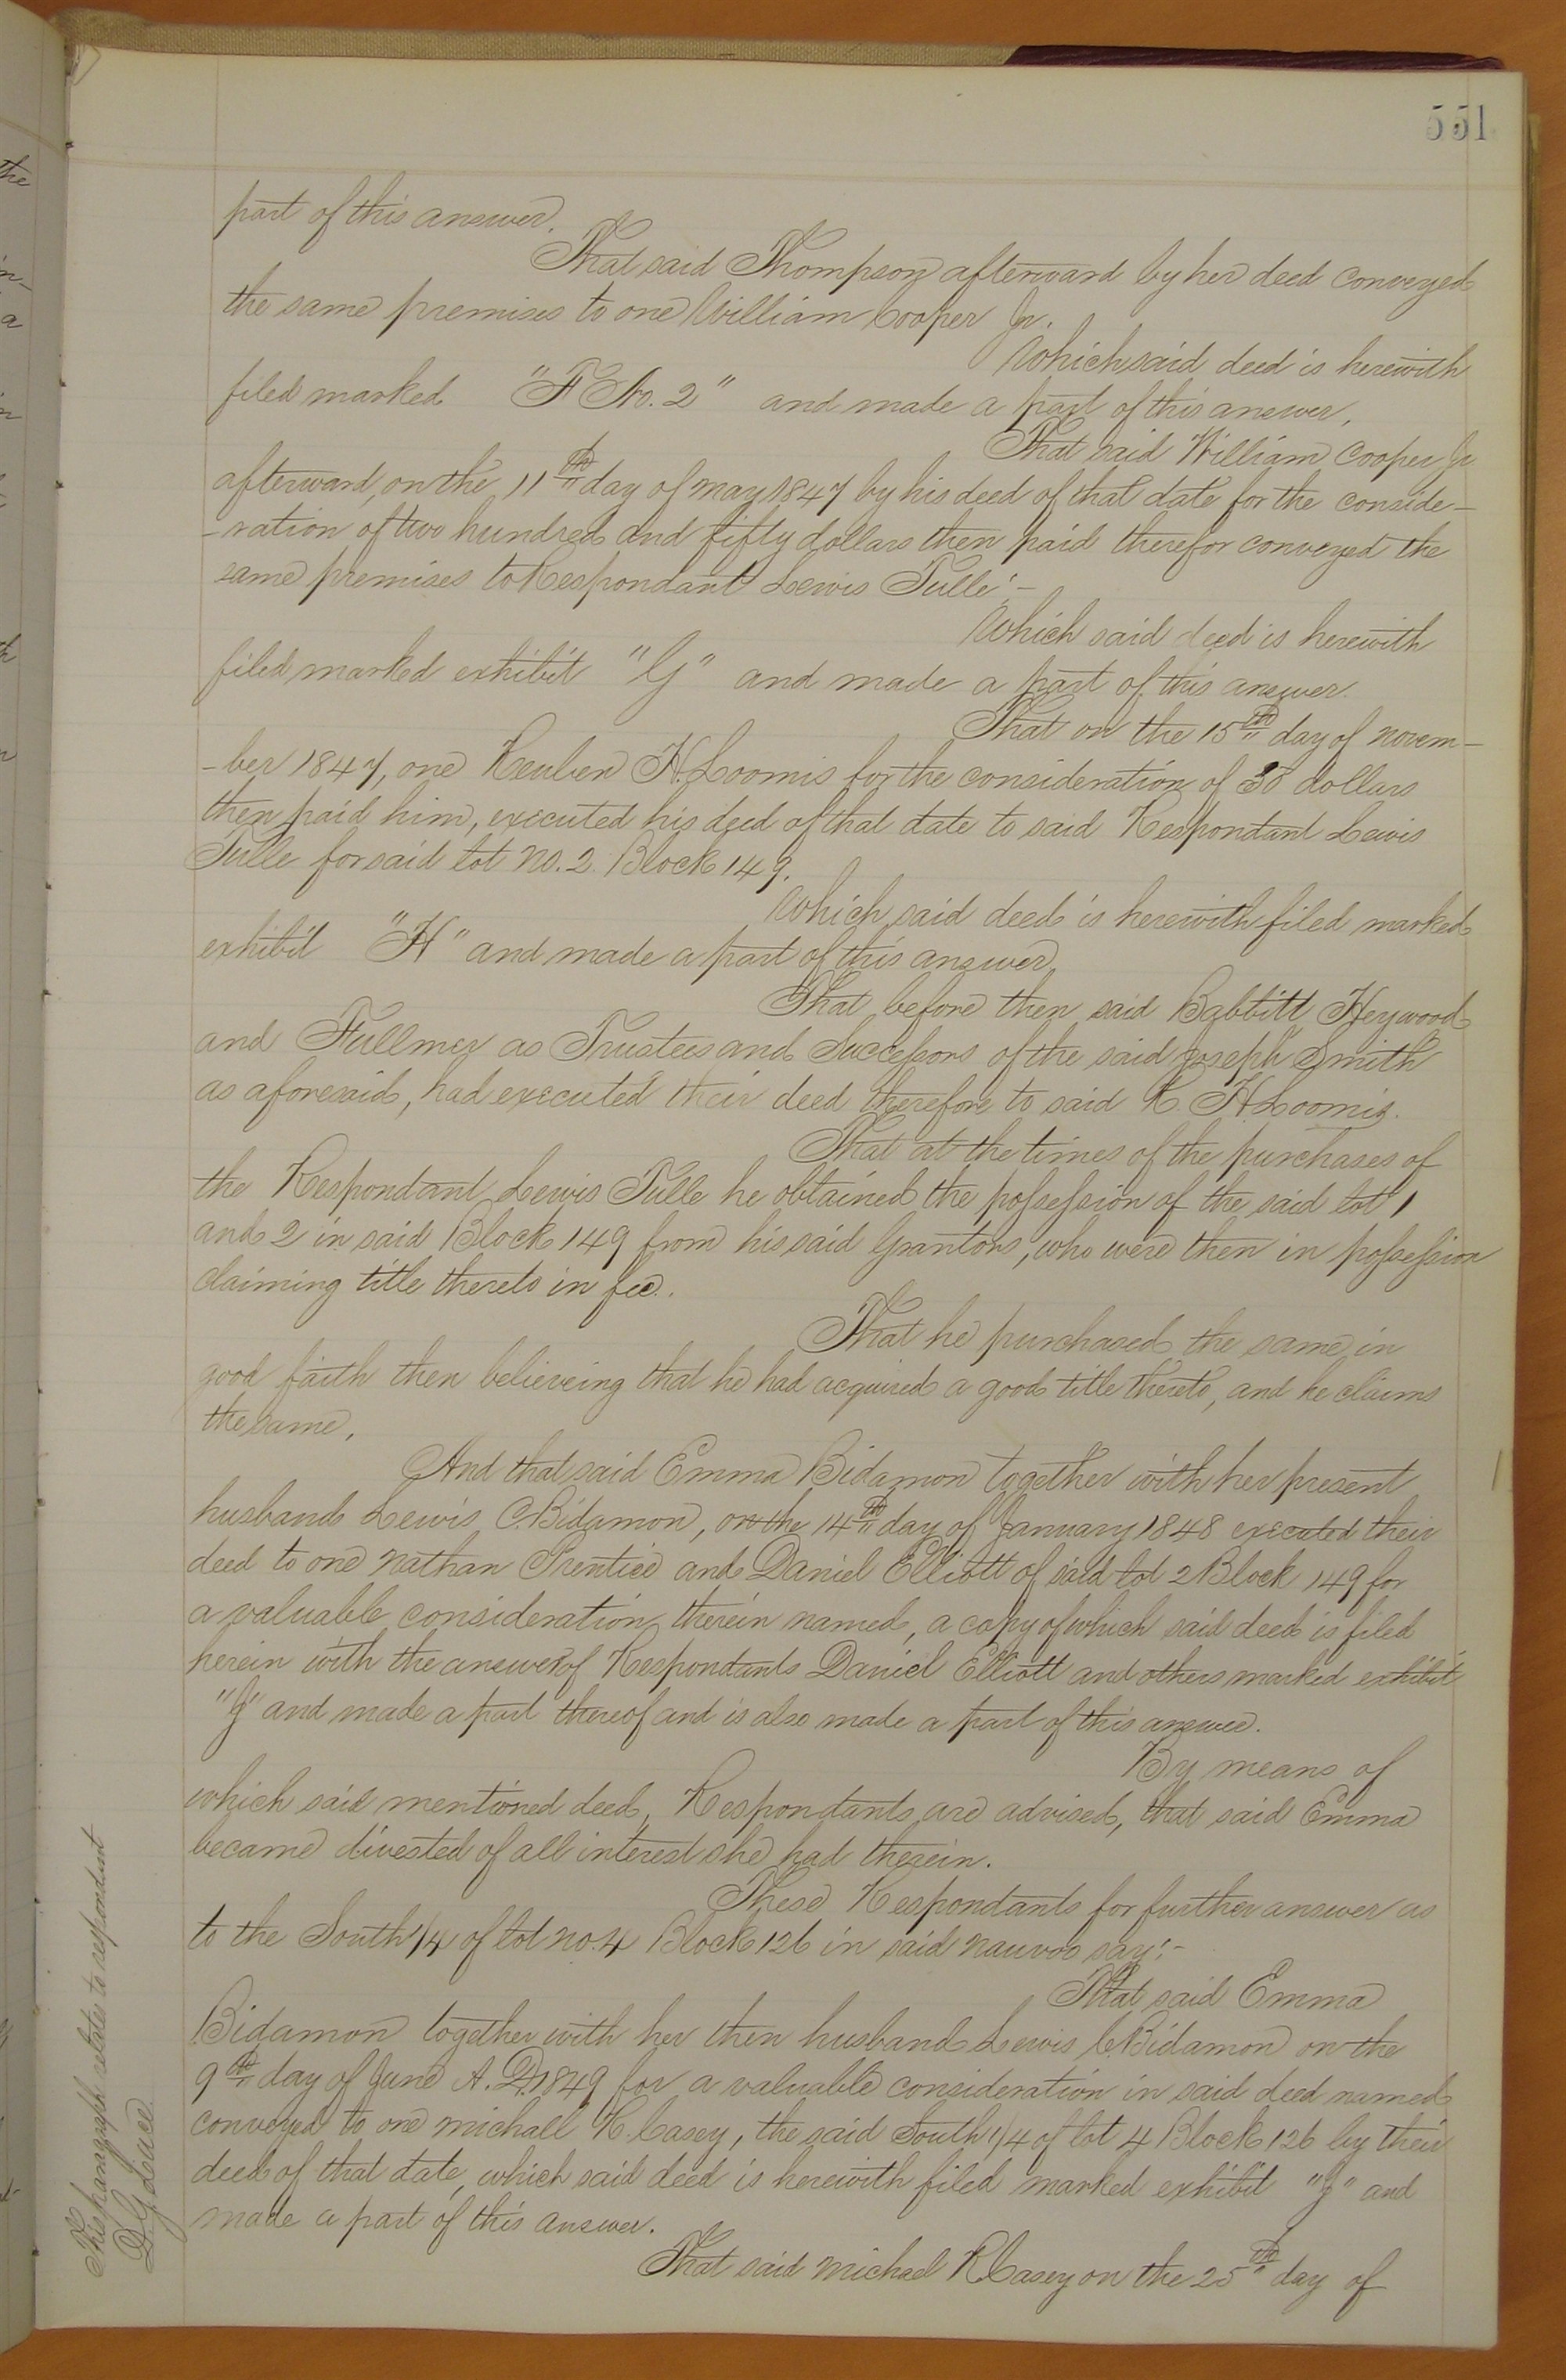 551
part of this answer.
That said Thompson afterward by her deed conveyed
the same premises to one William Cooper Jr.
Which said deed is herewith
filed marked "F No. 2" and made a part of this answer.
That said William Cooper Jr
afterward, on the 11th day of may 1847 by his deed of that date for the conside-
-ration of two hundred and fifty dollars then paid therefor conveyed the
same premises to Respondant Lewis Tulle:-
Which said deed is herewith
filed marked exhibit "G" and made a part of this answer.
That on the 15th day of novem-
-ber 1847, one Reuben H. Loomis for the consideration of 38 dollars
then paid him, executed his deed of that date to said Respondant Lewis
Tulle for said lot no. 2 Block 149.
Which said deed is herewith filed marked
exhibit "H" and made a part of this answer.
That before then said Babbitt Heywood
and Fullmer as Trustees and Successors of the said Joseph Smith
as aforesaid, had executed their deed therefore to said R. H. Loomis.
That at the times of the purchases of
the Respondant Lewis Tulle he obtained the possession of the said lot 1
and 2 in said Block 149 from his said Grantors, who were then in possession
claiming title thereto in fee.
That he purchased the same in
good faith then believeing that he had acquired a good title thereto, and he claims
the same.
And that said Emma Bidamon together with her present
husband Lewis C. Bidamon, on the 14th day of January 1848 executed their
deed to one Nathan Prentice and Daniel Elliott of said lot 2 Block 149 for
a valuable consideration therein named, a copy of which said deed is filed
herein with the answer of Respondants Daniel Elliott and others marked exhibit
"J" and made a part thereof and is also made a part of this answer.
By means of
which said mentioned deed, Respondants are advised, that said Emma
became divested of all interest she had therein.
These Respondants for further answer as
to the South 1/4 of lot no. 4 Block 126 in said nauvoo say:-
That said Emma
Bidamon together with her then husband Lewis C. Bidamon on the
9th day of June A. D. 1849 for a valuable consideration in said deed named
conveyed to one michall R. Casey, the said South 1/4 of lot 4 Block 126 by their
deed of that date, which said deed is herewith filed marked exhibit "J" and
made a part of this answer.
That said michael R Casey on the 25th day of
This paragraph relates to respondent
D. G. Luce